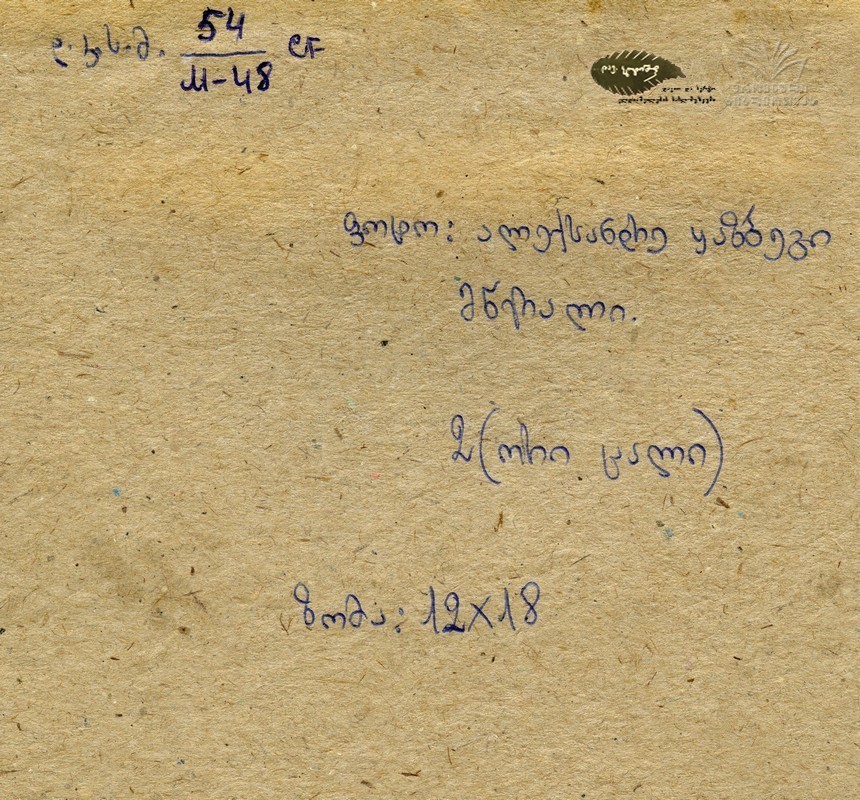 54
M-48
ფოტო: ალექსანდრე ყაზბეგი
მწერალი.
2(ორი ცალი)
ზომა: 12X18